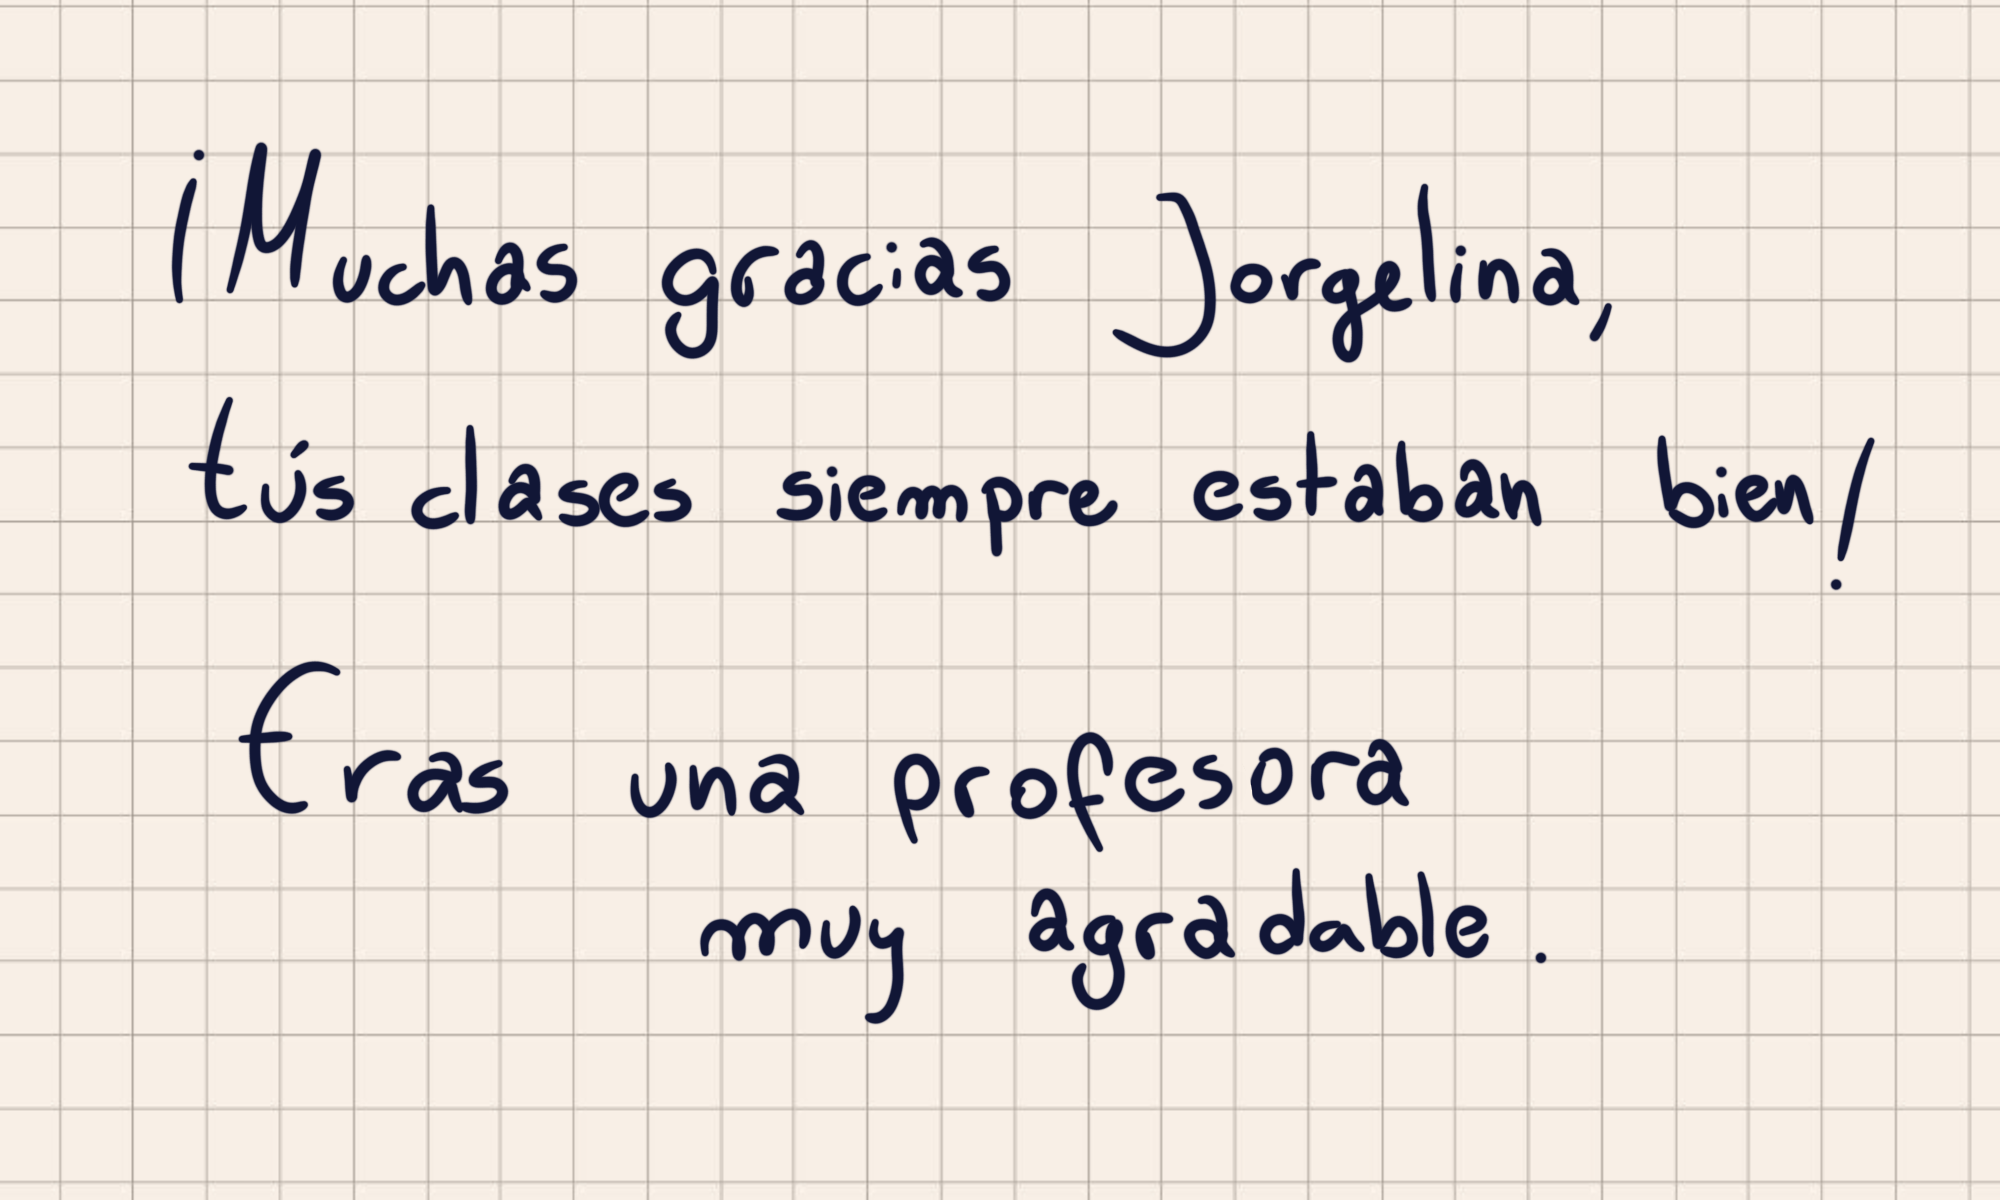 ¡Muchas gracias Jorgelina,
tús clases siempre estaban bien!
Eras una profesora
muy agradable.